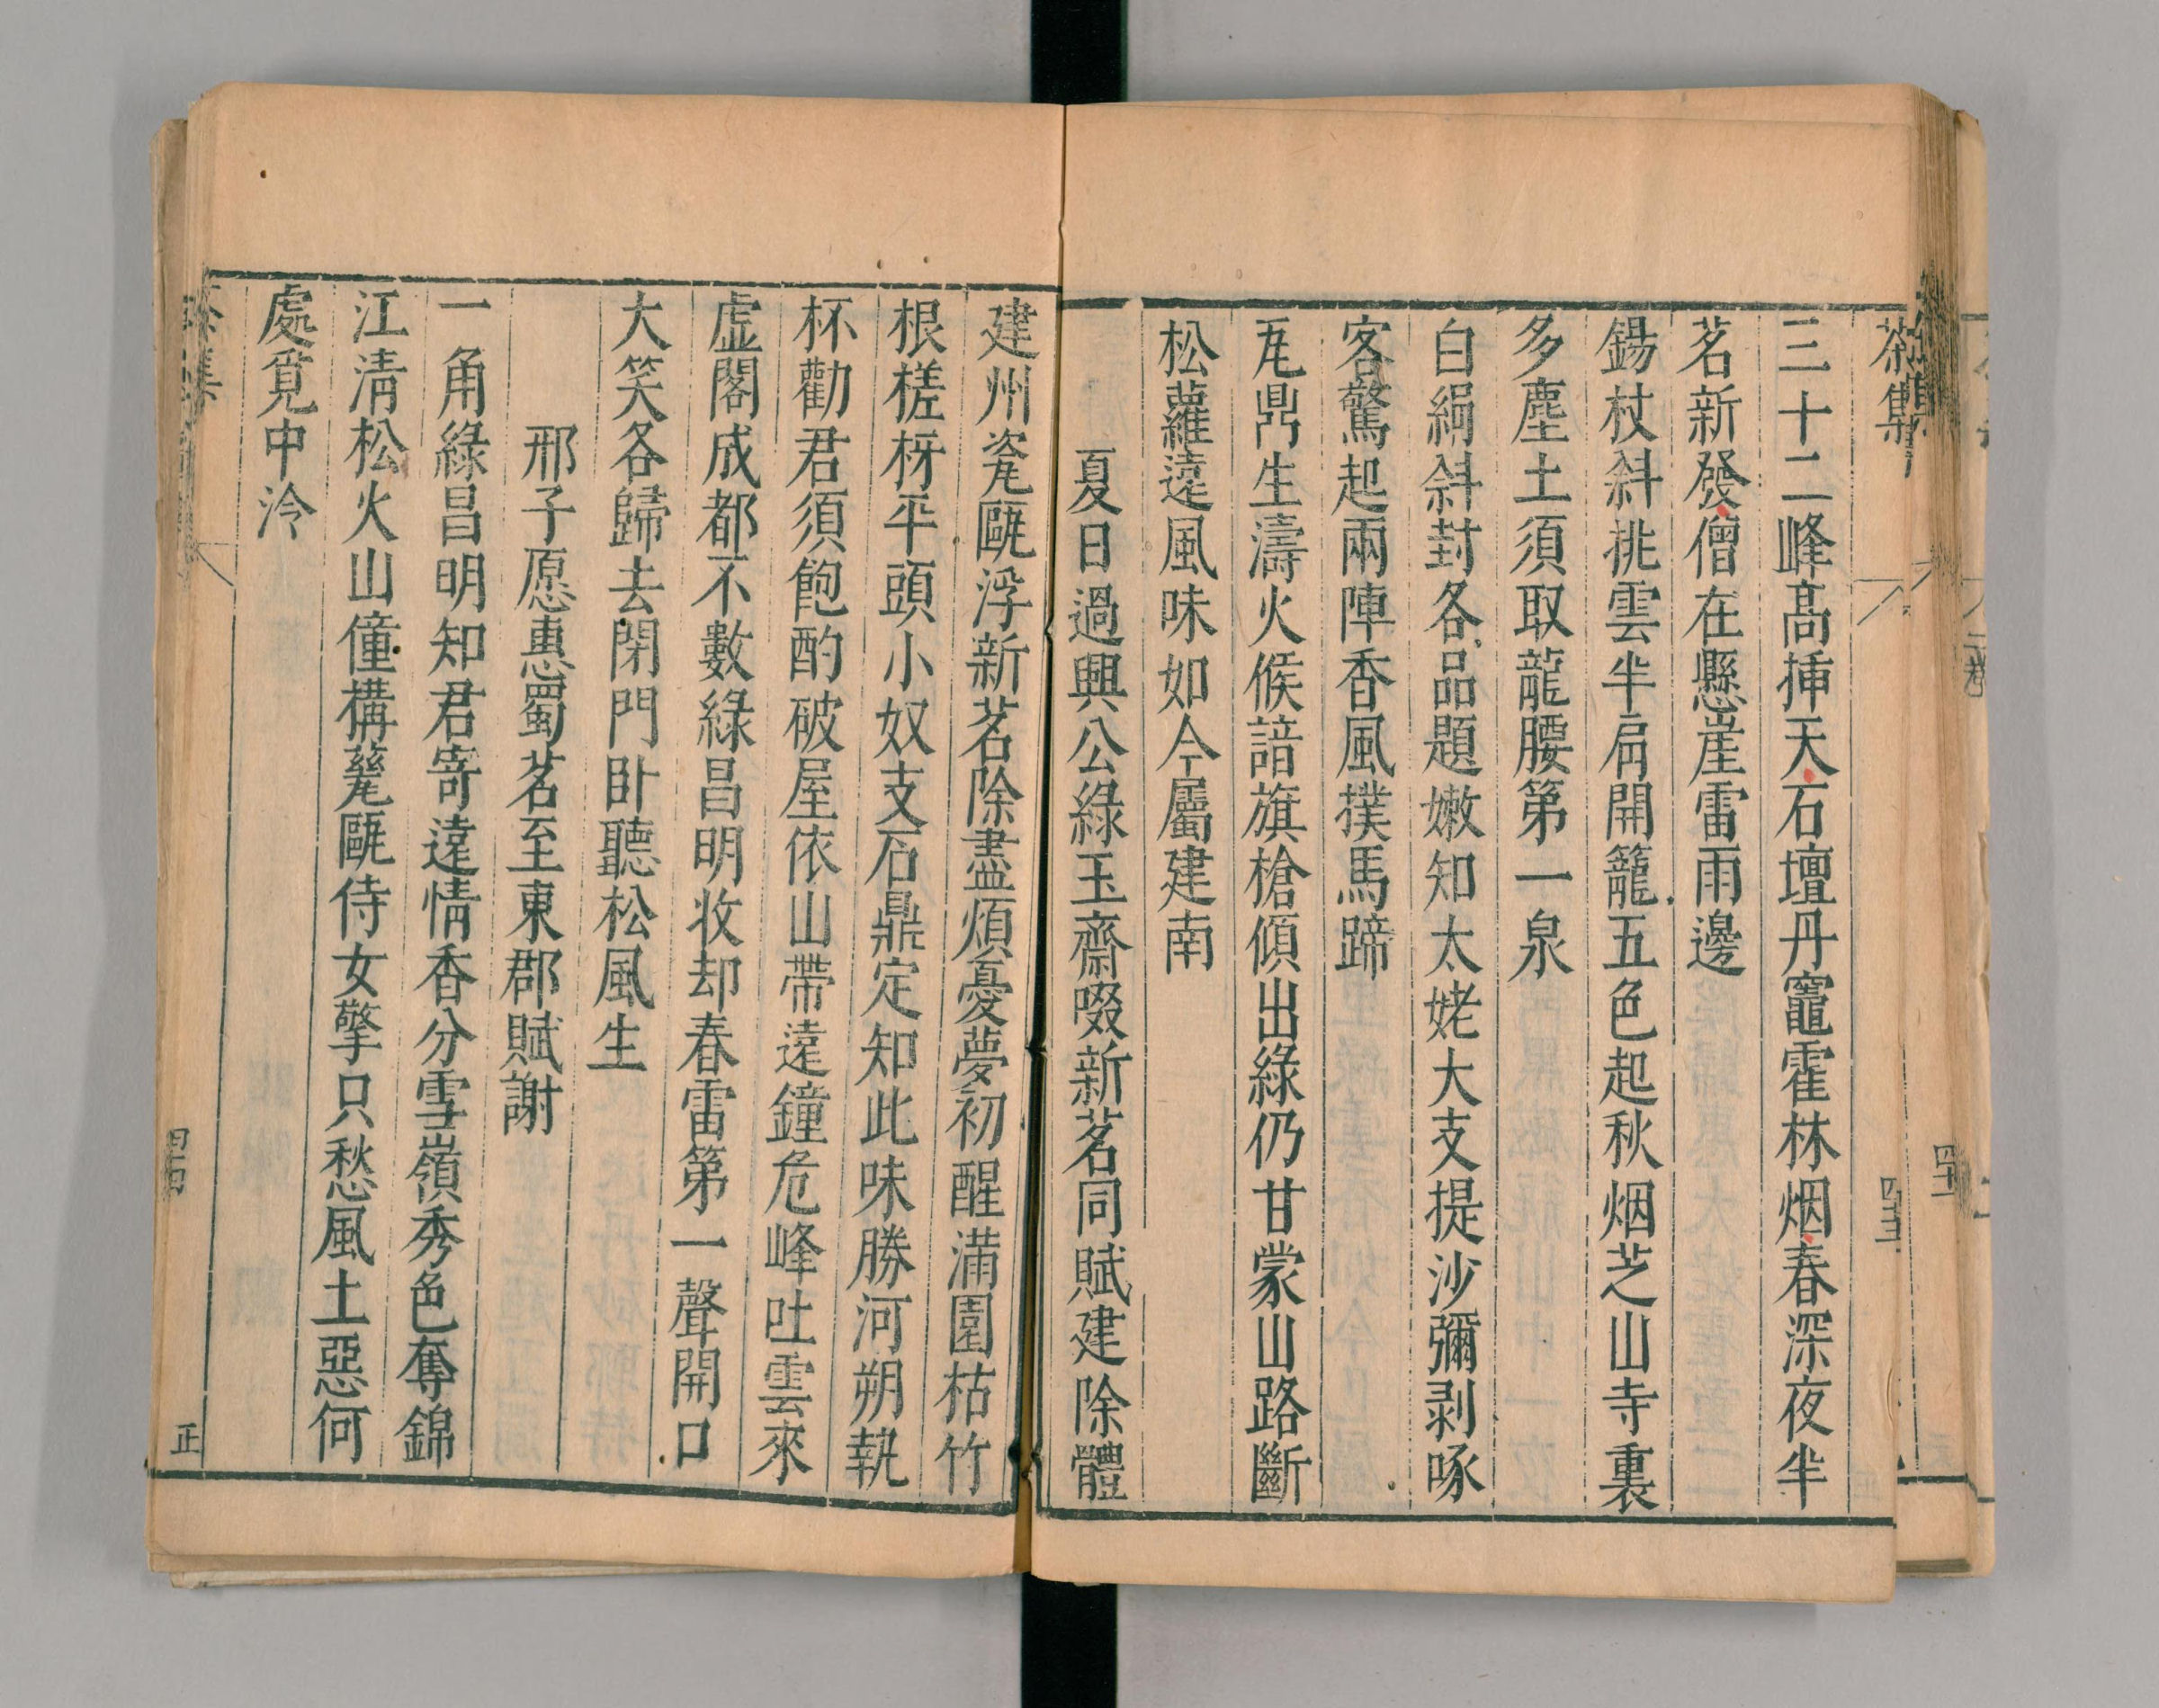 茶集
三十二峰高挿天石壇丹竈霍林烟春深夜半
茗新發僧在懸崖雷雨邊
錫杖斜挑雲半肩開籠五色起秋烟芝山寺裏
多塵土須取龍腰第一泉
白絹斜封各品題嫩知太姥大支提沙彌剥啄
客驚起兩陣香風撲馬蹄
瓦鼎生濤火候諳旗槍傾出綠仍甘蒙山路斷
松蘿遠風味如今屬建南
夏日過興公綠玉齋啜新茗同賦建除體
建州瓷甌浮新茗除盡煩憂夢初醒滿園枯竹
根槎枒平頭小奴支石鼎定知此味勝河朔執
杯勸君須飽酌破屋依山帶遠鐘危峰吐雲來
虛閣成都不數綠昌明收却春雷第一聲開口
大笑各歸去閉門卧聽松風生
邢子愿惠蜀茗至東郡賦謝
一角綠昌明知君寄遠情香分雪嶺秀色奪錦
江清松火山僮構甆甌侍女擎只愁風土惡何
處覓中泠
茶集
正